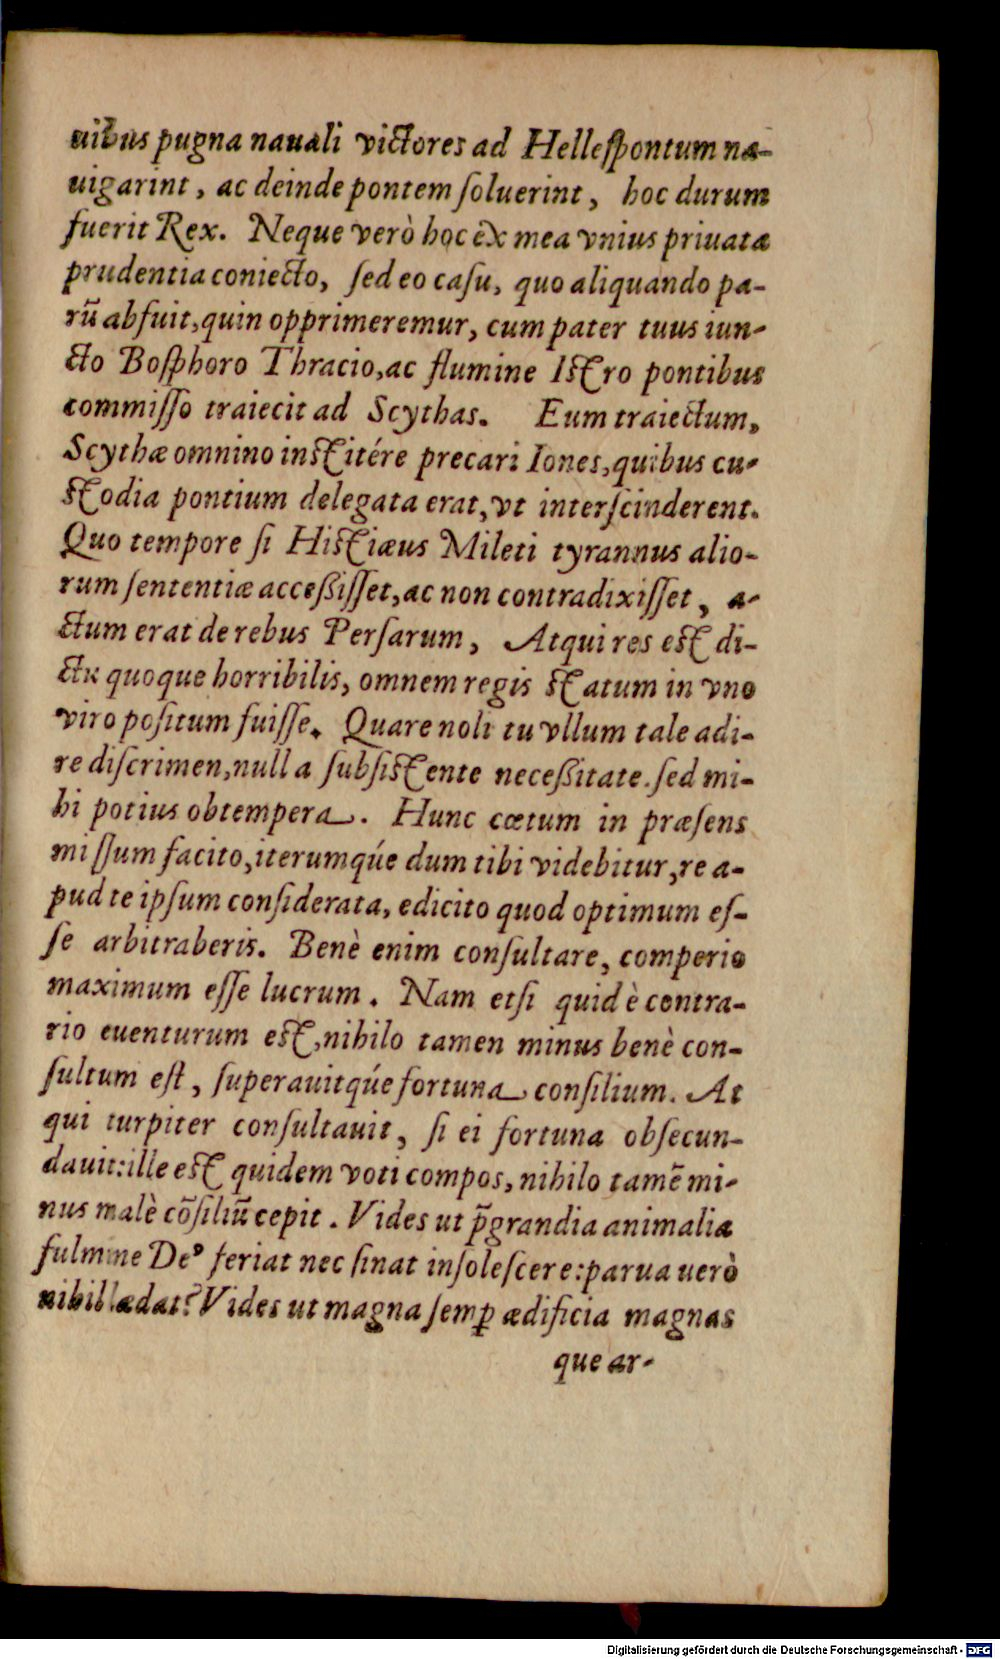 uibus pugna nauali victores ad Helleſpontum na-
uigarint, ac deinde pontem ſoluerint, hoc durum
fuerit Rex. Neque verò hoc ex mea vnius priuata
prudentia coniecto, ſed eo caſu, quo aliquando pa-
rū abfuit, quin opprimeremur, cum pater tuus iun-
cto Boſphoro Thracio, ac flumine Iſtro pontibus
commiſſo traiecit ad Scythas. Eum traiectum,
Scythæ omnino inſtitére precari Iones, quibus cu-
ſtodia pontium delegata erat, vt interſcinderent.
Quo tempore ſi Hiſtiæus Mileti tyrannus alio-
rum ſententiæ acceßiſſet, ac non contradixiſſet, a-
ctum erat de rebus Perſarum, Atqui res eſt di-
ctu quoque horribilis, omnem regis ſtatum in vno
viro poſitum fuiſſe. Quare noli tu vllum tale adi-
re diſcrimen, nulla ſubſiſtente neceßitate. ſed mi-
hi potius obtempera. Hunc cœtum in præſens
miſſum facito, iterumqúe dum tibi videbitur, re a-
pud te ipſum conſiderata, edicito quod optimum eſ-
ſe arbitraberis. Benè enim conſultare, comperio
maximum eſſe lucrum. Nam etſi quid è contra-
rio euenturum eſt, nihilo tamen minus benè con-
ſultum eſt, ſuperauitqúe fortuna conſilium. At
qui turpiter conſultauit, ſi ei fortuna obſecun-
dauit: ille eſt quidem voti compos, nihilo tamē mi-
nus malè cōſiliū cepit. Vides ut p̄grandia animalia
fulmine Deꝰ feriat nec ſinat inſoleſcere: parua uerò
nihil lædat? Vides ut magna ſemꝑ ædificia magnas
que ar-
Digitalisierung gefördert durch die Deutsche Forschungsgemeinschaft - DFG